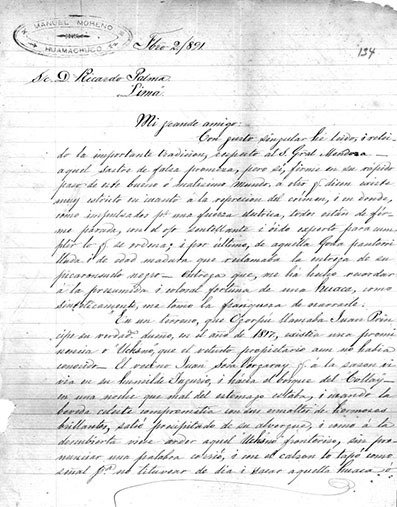 MANUEL MORENO
HUAMACHUCO
Fbro 2/891
134
Sr. D. Ricardo Palma
Lima
Mi grande amigo:
Con gusto singular he leido, i relei-
do la importante tradicion, respecto al S. Gral Mendoza
aquel sastre de falsa promesa, pero sí, firme en su rápido
paso de este bueno ó malísimo mundo, á otro q. dicen existe
muy estricto en cuanto á la represion del crímen, i en donde,
como impulsados pr una fuerza electrica, todos están de fir-
me parada, con el ojo centellante i oido esperto para cum-
plir lo q. se ordena; i por último, de aquella Goda pantorri
llada i de edad madura que reclamaba la entrega de su
picaronsudo negro — entrega que, me ha hecho recordar
i la presumida i colosal fortuna de una huaca, como
sintéticamente, me tomo la franqueza de narrarle.
En un terreno, que llamaba Juan Prin-
cipe su verdado. dueño, en el año de 1817, existia una promi
nencia ó que el velusto propietario aun no habia
conocido. El vecino Juan José q. á la sason vi
via en su humilde i hácia el bosque del Collay —
en una noche que mal del estomago estaba, i cuando la
bóveda celeste con sus esmaltes de hermosos
brillantes, salió precipitado de su albergue, i como á la
descubierta viese arder aquel fronterizo, sin pro-
nunciar una palabra corrió, i con el calson lo tapó como
señal pa. no titubear de dia i sacar aquella huaca